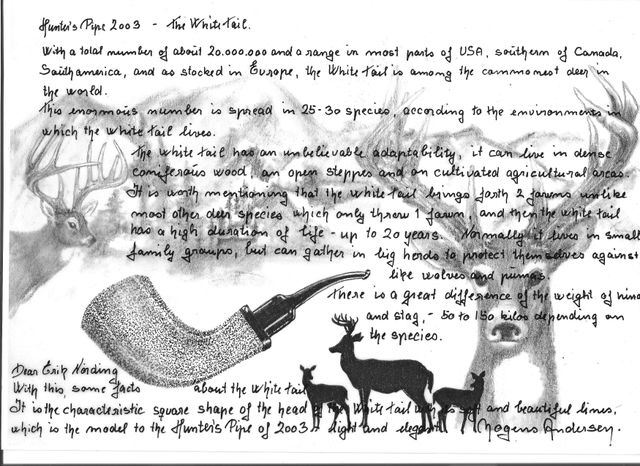 Hunter's Pipe 2003 - The White Tail.
With a total number of about 20.000.000 and a range in most parts of USA, southern of Canada,
Saidhamerica, and as stocked in Europe, the White tail is among the commonest deer in
the world.
This enormous number is spread in 25-30 species, according to the environments in
which the White tail lives.
The white tail has an unbelievable adaptability, it can live in dense
coniferous wood, an open steppes and on cultivated agricultural areas.
It is worth mentioning that the white tail brings forth 2 fawns unlike
most other deer species which only throw 1 fawn, and then the white tail
has a high duration of life - up to 20 years. Normally it lives in small
family groups, but can gather in big herds to protect themselves against
like wolves and pumas.
There is a great difference of the weight of hind
and stag, - 50 to 150 kilos depending on
the species.
Dear Erik Nörding
With this, some facts about the White tail
It is the characteristic square shape of the head of the White tail with its and beautiful lines,
which is the model to the Hunter's Pipe of 2003 - light and elegant. Mogens Andersen.